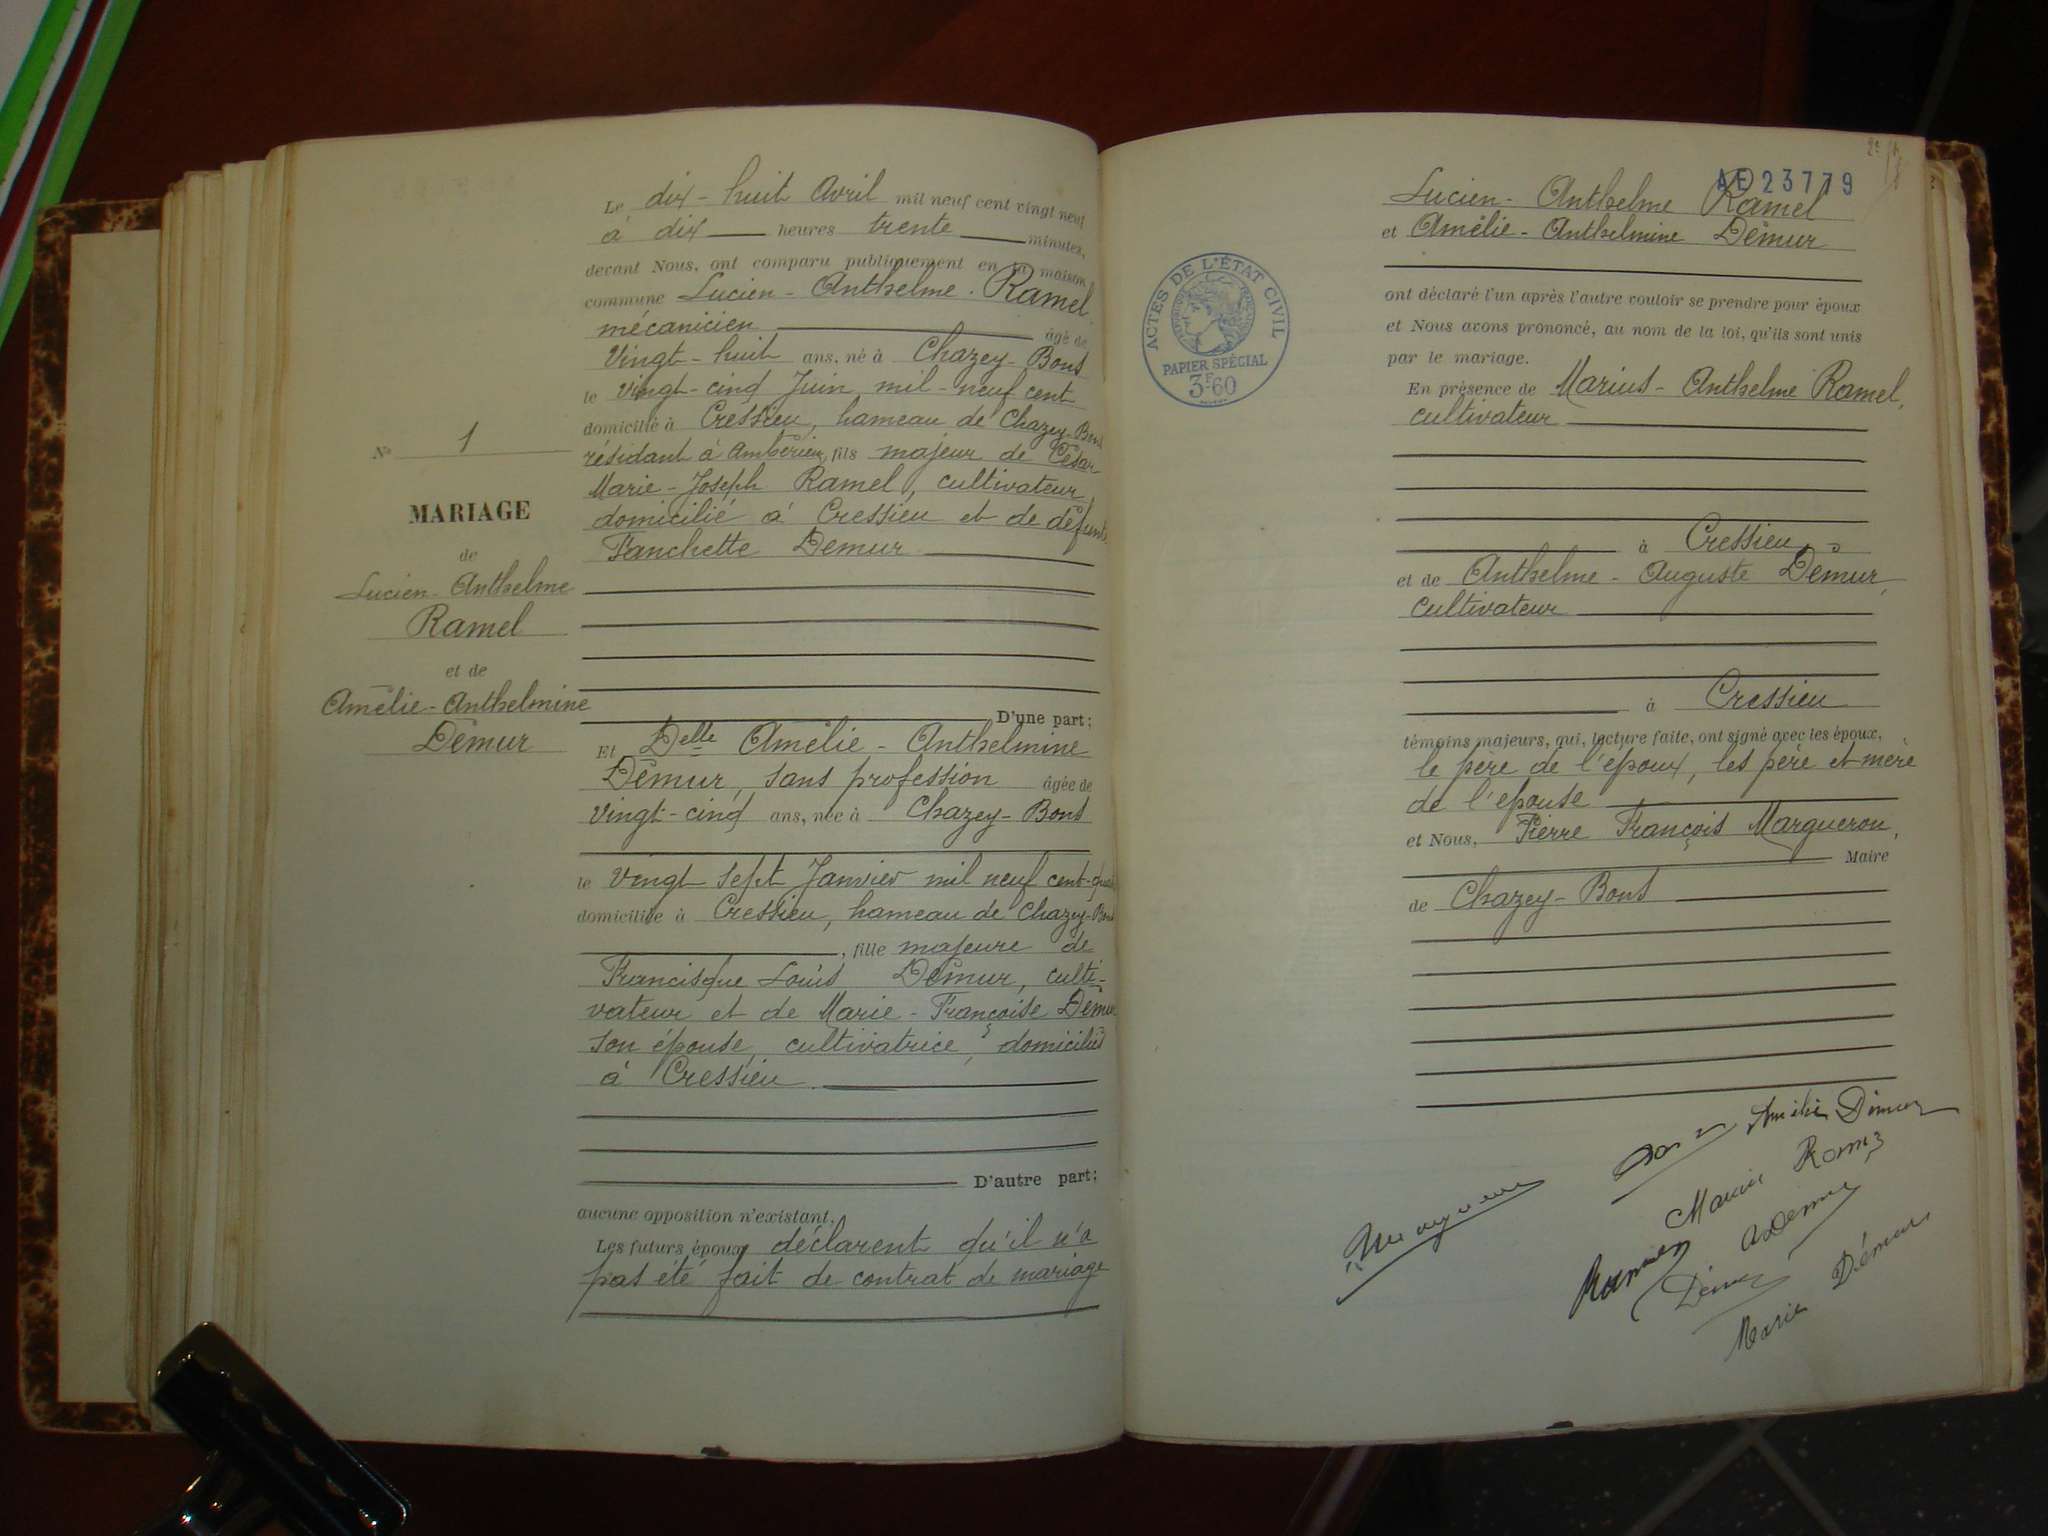 Le dix-huit Avril mil neuf cent vingt neuf
à dix heures trente minutes,
devant Nous, ont comparu publiquement en la maison
commune Lucien-Anthelme Ramel,
mécanicien âgé de
vingt-huit ans, né à Chazey-Bons
le vingt-cinq Juin mil-neuf cent
domicilié à Cressieu, hameau de Chazey-Bons
résidant à Ambérieu, fils majeur de César
Marie-Joseph Ramel, cultivateur
domicilié à Cressieu et de défunte
Fanchette Demur
D'une part;
Et Delle Amélie-Anthelmine
Démur, sans profession âgée de
vingt-cinq ans, née à Chazey-Bons
le vingt sept Janvier mil neuf cent-quatre
domiciliée à Cressieu, hameau de Chazey-Bons
, fille majeure de
Francisque Louis Démur, culti-
vateur et de Marie-Françoise Démur
son épouse, cultivatrice, domiciliés
à Cressieu
D'autre part;
aucune opposition n'existant.
Les futurs époux déclarent qu'il n'a
pas été fait de contrat de mariage
No 1
MARIAGE
de
Lucien-Anthelme
Ramel
et de
Amélie-Anthelmine
Démur
AE 23779
Lucien-Anthelme Ramel
et Amélie-Anthelmine Démur
ACTES DE L'ÉTAT CIVIL
RÉPUBLIQUE FRANÇAISE
PAPIER SPÉCIAL
3F60
ont déclaré l'un après l'autre vouloir se prendre pour époux
et Nous avons prononcé, au nom de la loi, qu'ils sont unis
par le mariage.
En présence de Marius-Anthelme Ramel,
cultivateur
à Cressieu,
et de Anthelme-Auguste Démur,
cultivateur
à Cressieu
témoins majeurs, qui, lecture faite, ont signé avec les époux,
le père de l'époux, les père et mère
de l'épouse
et Nous, Pierre François Margueron,
Maire
de Chazey-Bons
Amélie Démur
Marius Ramel
ADemur
Démur
Marie Démur